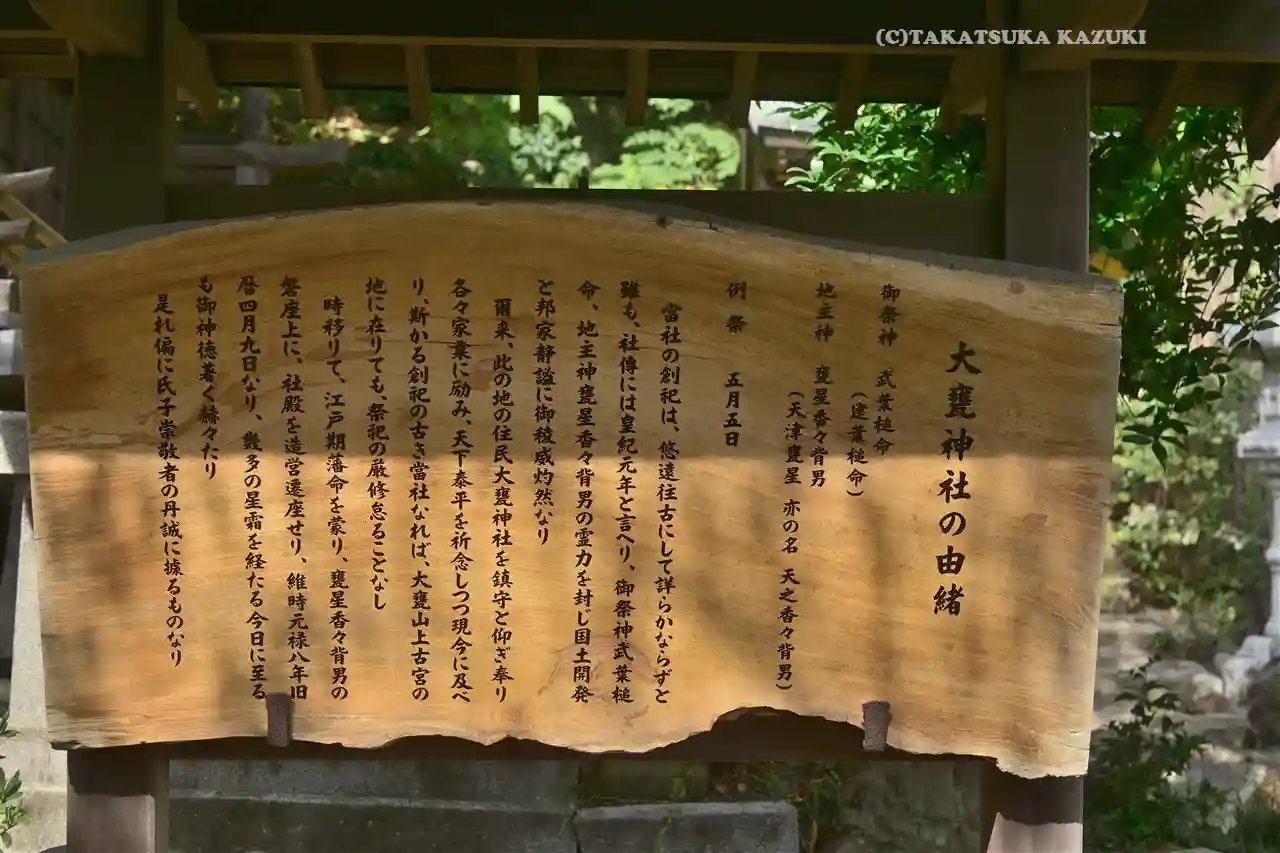 (C)TAKATSUKA KAZUKI
大甕神社の由緒
御祭神　武葉槌命
（建葉槌命）
地主神　甕星香々背男
（天津甕星　亦の名　天之香々背男）
例　祭　五月五日
當社の創祀は、悠遠往古にして詳らかならずと
雖も、社傳には皇紀元年と言へり、御祭神武葉槌
命、地主神甕星香々背男の霊力を封じ国土開発
と邦家静謐に御稜威灼然なり
爾来、此の地の住民大甕神社を鎮守と仰ぎ奉り
各々家業に励み、天下泰平を祈念しつつ現今に及べ
り、斯かる創祀の古き當社なれば、大甕山上古宮の
地に在りても、祭祀の厳修怠ることなし
時移りて、江戸期藩命を蒙り、甕星香々背男の
磐座上に、社殿を造営遷座せり、維時元禄八年旧
暦四月九日なり、幾多の星霜を経たる今日に至る
も御神徳著く赫々たり
是れ偏に氏子崇敬者の丹誠に據るものなり